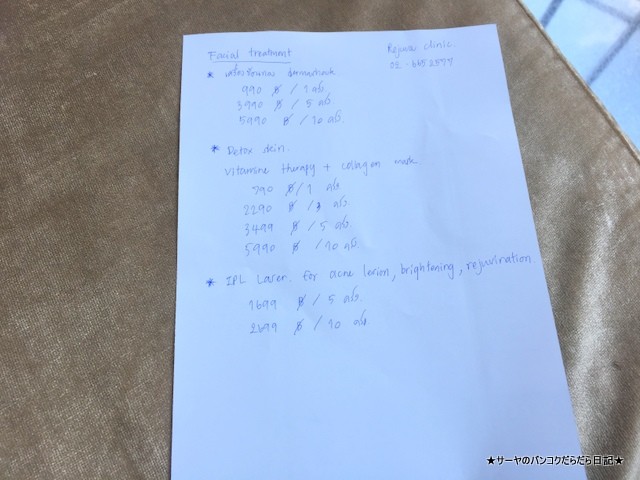 Facial treatment
clinic.
*
990 ฿ / 1 ครั้ง
3990 ฿ / 5 ครั้ง
5990 ฿ / 10 ครั้ง
* Detox skin.
Vitamine therapy + collagen mask
990 ฿ / 1 ครั้ง
2290 ฿ / 3 ครั้ง
3499 ฿ / 5 ครั้ง
5990 ฿ / 10 ครั้ง
* IPL Laser. for acne lesion, brightening, rejuvination.
1699 ฿ / 5 ครั้ง.
2699 ฿ / 10 ครั้ง.
★サーヤのバンコクだらだら日記★